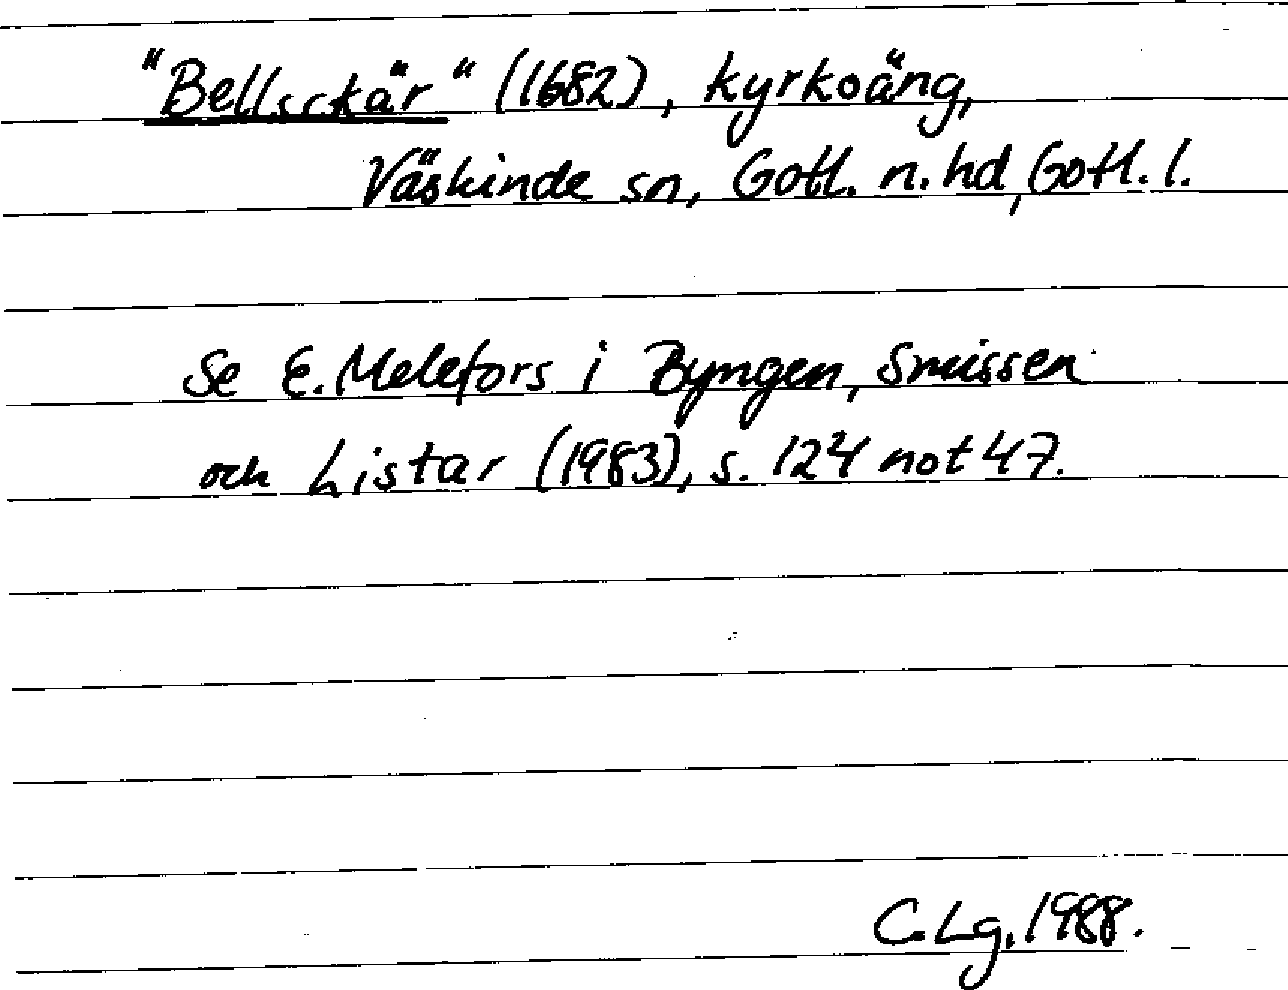 "Bellsckär" (1682), kyrkoäng,
Väskinde sn, Gotl. n. hd, Gotl. l.
Se E. Melefors i Byngen, Smissen
och Listar (1983), s. 124 not 47.
C. Lg. 1988.